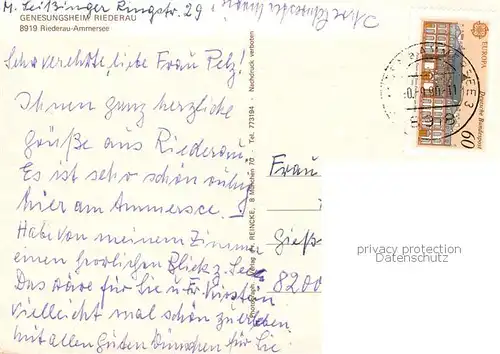 M. Leißinger Ringstr. 29
GENESUNGSHEIM RIEDERAU
8919 Riederau-Ammersee
Sehr verehrte, liebe Frau Pelz!
Ihnen ganz herzliche
Grüße aus Riederau.
Es ist sehr schön ruhig
hier am Ammersee.
Habe von meinem Zimmer
einen herrlichen Blick z. See.
Das wäre für Sie u. Fr.
vielleicht mal schön zu erleben.
Mit allen guten Wünschen für Sie
REINCKE, 8 München 70 Tel. 773184 - Nachdruck verboten
EUROPA
Deutsche Bundespost
60
SEE 3
Frau
Gieß
8200
privacy protection
Datenschutz